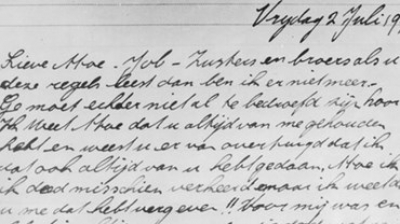 Vrydag 2 Juli 19
Lieve Moe. Job - Zusters en broers als u
deze regels leest dan ben ik er niet meer.
Ge moet echter niet al te bedroefd zijn hoor
Ik weet Moe dat u altijd van me gehouden
hebt en weest u er van overtuigd dat ik
dat ook altijd van u hebt gedaan. Moe ik
ik deed misschien verkeerd maar ik weet dat
u me dat hebt vergeven!! Voor mij was en